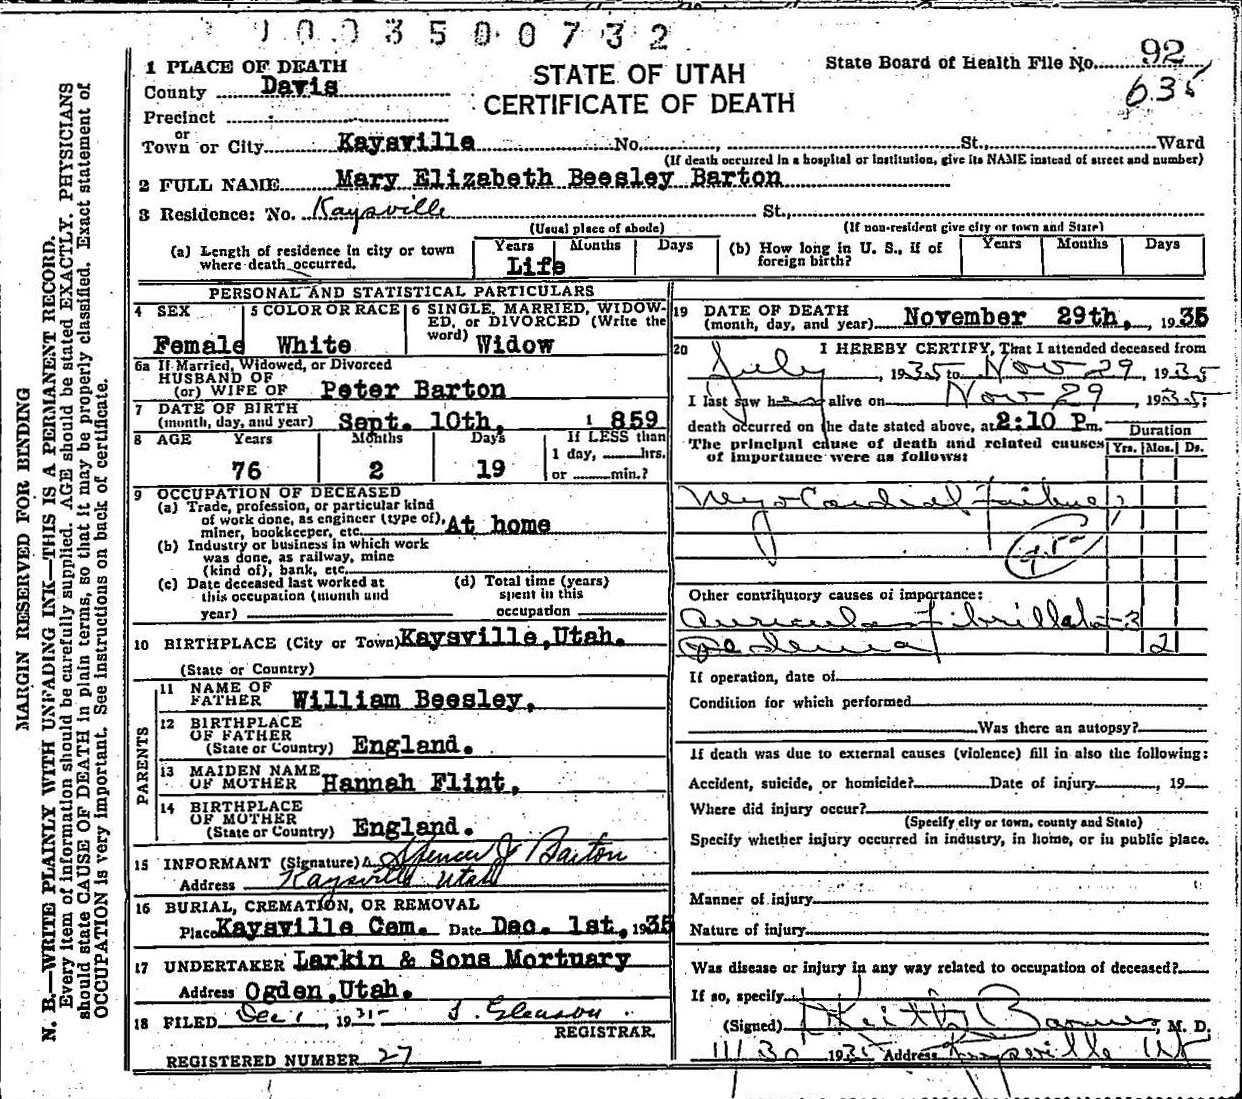 1003500732
1 PLACE OF DEATH
STATE OF UTAH
CERTIFICATE OF DEATH
State Board of Health File No. 92
635
County Davis
Precinct
or
Town or City Kaysville No. , St., Ward
(If death occurred in a hospital or institution, give its NAME instead of street and number)
2 FULL NAME Mary Elizabeth Beesley Barton
3 Residence: No. Kaysville St.,
(Usual place of abode) (If non-resident give city or town and State)
(a) Length of residence in city or town where death occurred. Years Months Days
Life
(b) How long in U. S., if of foreign birth? Years Months Days
PERSONAL AND STATISTICAL PARTICULARS
4 SEX 5 COLOR OR RACE 6 SINGLE, MARRIED, WIDOW-
ED, or DIVORCED (Write the
word)
Female White Widow
6a If Married, Widowed, or Divorced
HUSBAND OF
(or) WIFE OF Peter Barton
7 DATE OF BIRTH
(month, day, and year) Sept. 10th, 1859
8 AGE Years Months Days If LESS than
1 day, hrs.
or min.?
76 2 19
9 OCCUPATION OF DECEASED
(a) Trade, profession, or particular kind
of work done, as engineer (type of),
miner, bookkeeper, etc. At home
(b) Industry or business in which work
was done, as railway, mine
(kind of), bank, etc.
(c) Date deceased last worked at
this occupation (month and
year)
(d) Total time (years)
spent in this
occupation
10 BIRTHPLACE (City or Town) Kaysville, Utah.
(State or Country)
PARENTS
11 NAME OF
FATHER William Beesley,
12 BIRTHPLACE
OF FATHER
(State or Country) England.
13 MAIDEN NAME
OF MOTHER Hannah Flint,
14 BIRTHPLACE
OF MOTHER
(State or Country) England.
15 INFORMANT (Signature) Spencer J Barton
Address Kaysville Utah
16 BURIAL, CREMATION, OR REMOVAL
Place Kaysville Cem. Date Dec. 1st, 1935
17 UNDERTAKER Larkin & Sons Mortuary
Address Ogden, Utah.
18 FILED Dec 1, 1935 J. Gleason
REGISTRAR.
REGISTERED NUMBER 27
19 DATE OF DEATH
(month, day, and year) November 29th, , 1935
20 I HEREBY CERTIFY, That I attended deceased from
July , 1935 to Nov 29, 1935
I last saw her alive on Nov 29, 1935;
death occurred on the date stated above, at 2:10 P.m.
The principal cause of death and related causes
of importance were as follows:
Duration
Yrs. Mos. Ds.
Myo Cardial Failure
Other contributory causes of importance:
Auricular Fibrillation 3
Oedema 2
If operation, date of
Condition for which performed
Was there an autopsy?
If death was due to external causes (violence) fill in also the following:
Accident, suicide, or homicide? Date of injury , 19
Where did injury occur?
(Specify city or town, county and State)
Specify whether injury occurred in industry, in home, or in public place.
Manner of injury
Nature of injury
Was disease or injury in any way related to occupation of deceased?
If so, specify
(Signed) Keith Barnes, M. D.
11/30 1935 Address Kaysville Ut
MARGIN RESERVED FOR BINDING
N. B.—WRITE PLAINLY WITH UNFADING INK—THIS IS A PERMANENT RECORD.
Every item of information should be carefully supplied. AGE should be stated EXACTLY. PHYSICIANS
should state CAUSE OF DEATH in plain terms, so that it may be properly classified. Exact statement of
OCCUPATION is very important. See instructions on back of certificate.